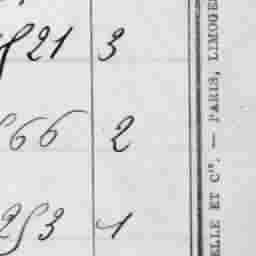 821 3
566 2
253 1
ELLE ET Cie. — PARIS, LIMOGE